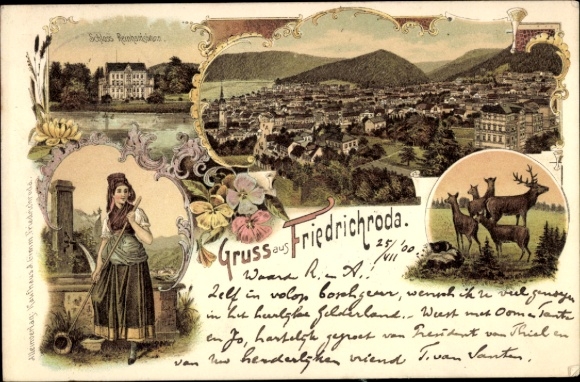 Schloss Reinhardsbrunn
Gruss aus Friedrichroda.
25/VII '00
Waard R. en A.!
Zelf in volop boschgeur, wensch ik u veel genoegen
in het heerlijke Gelderland. - Weest met Oom en tante
en Jo, hartelijk gegroet van President van Thiel en
van uw vriend T. van Santen.
Alleinverlag Kaufhaus Friedrichroda.